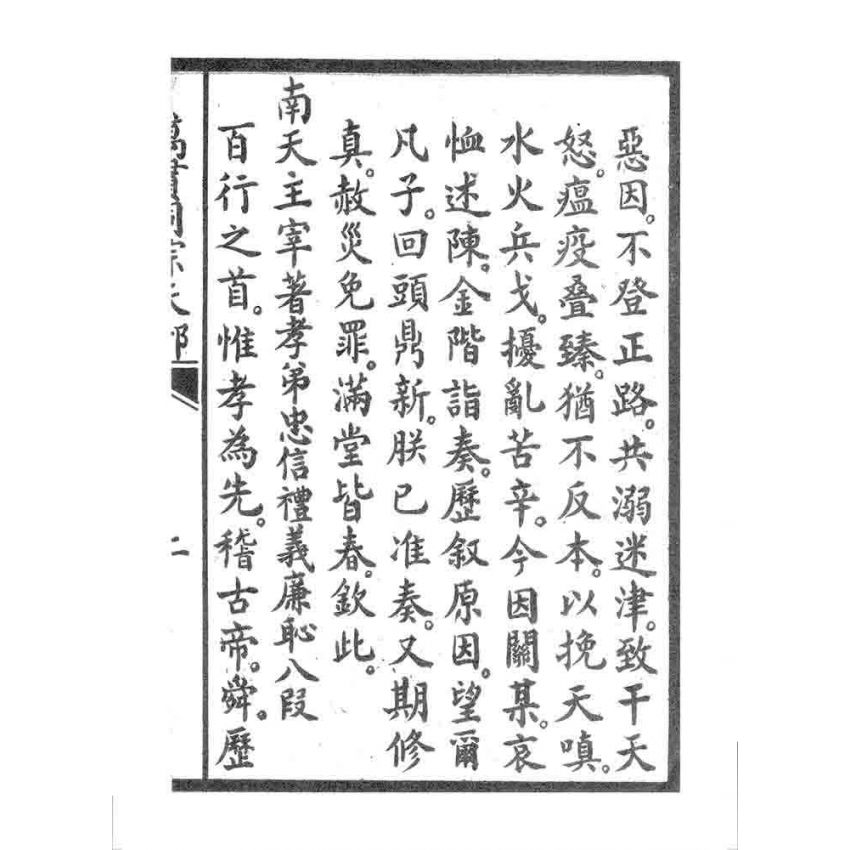 惡因。不登正路。共溺迷津。致干天
怒。瘟疫叠臻。猶不反本。以挽天嗔。
水火兵戈。擾亂苦辛。今因關某。哀
恤述陳。金階詣奏。歷叙原因。望爾
凡子。回頭鼎新。朕已准奏。又期修
真。赦災免罪。滿堂皆春。欽此。
南天主宰著孝弟忠信禮義廉恥八段
百行之首。惟孝為先。稽古帝。舜。歷
二